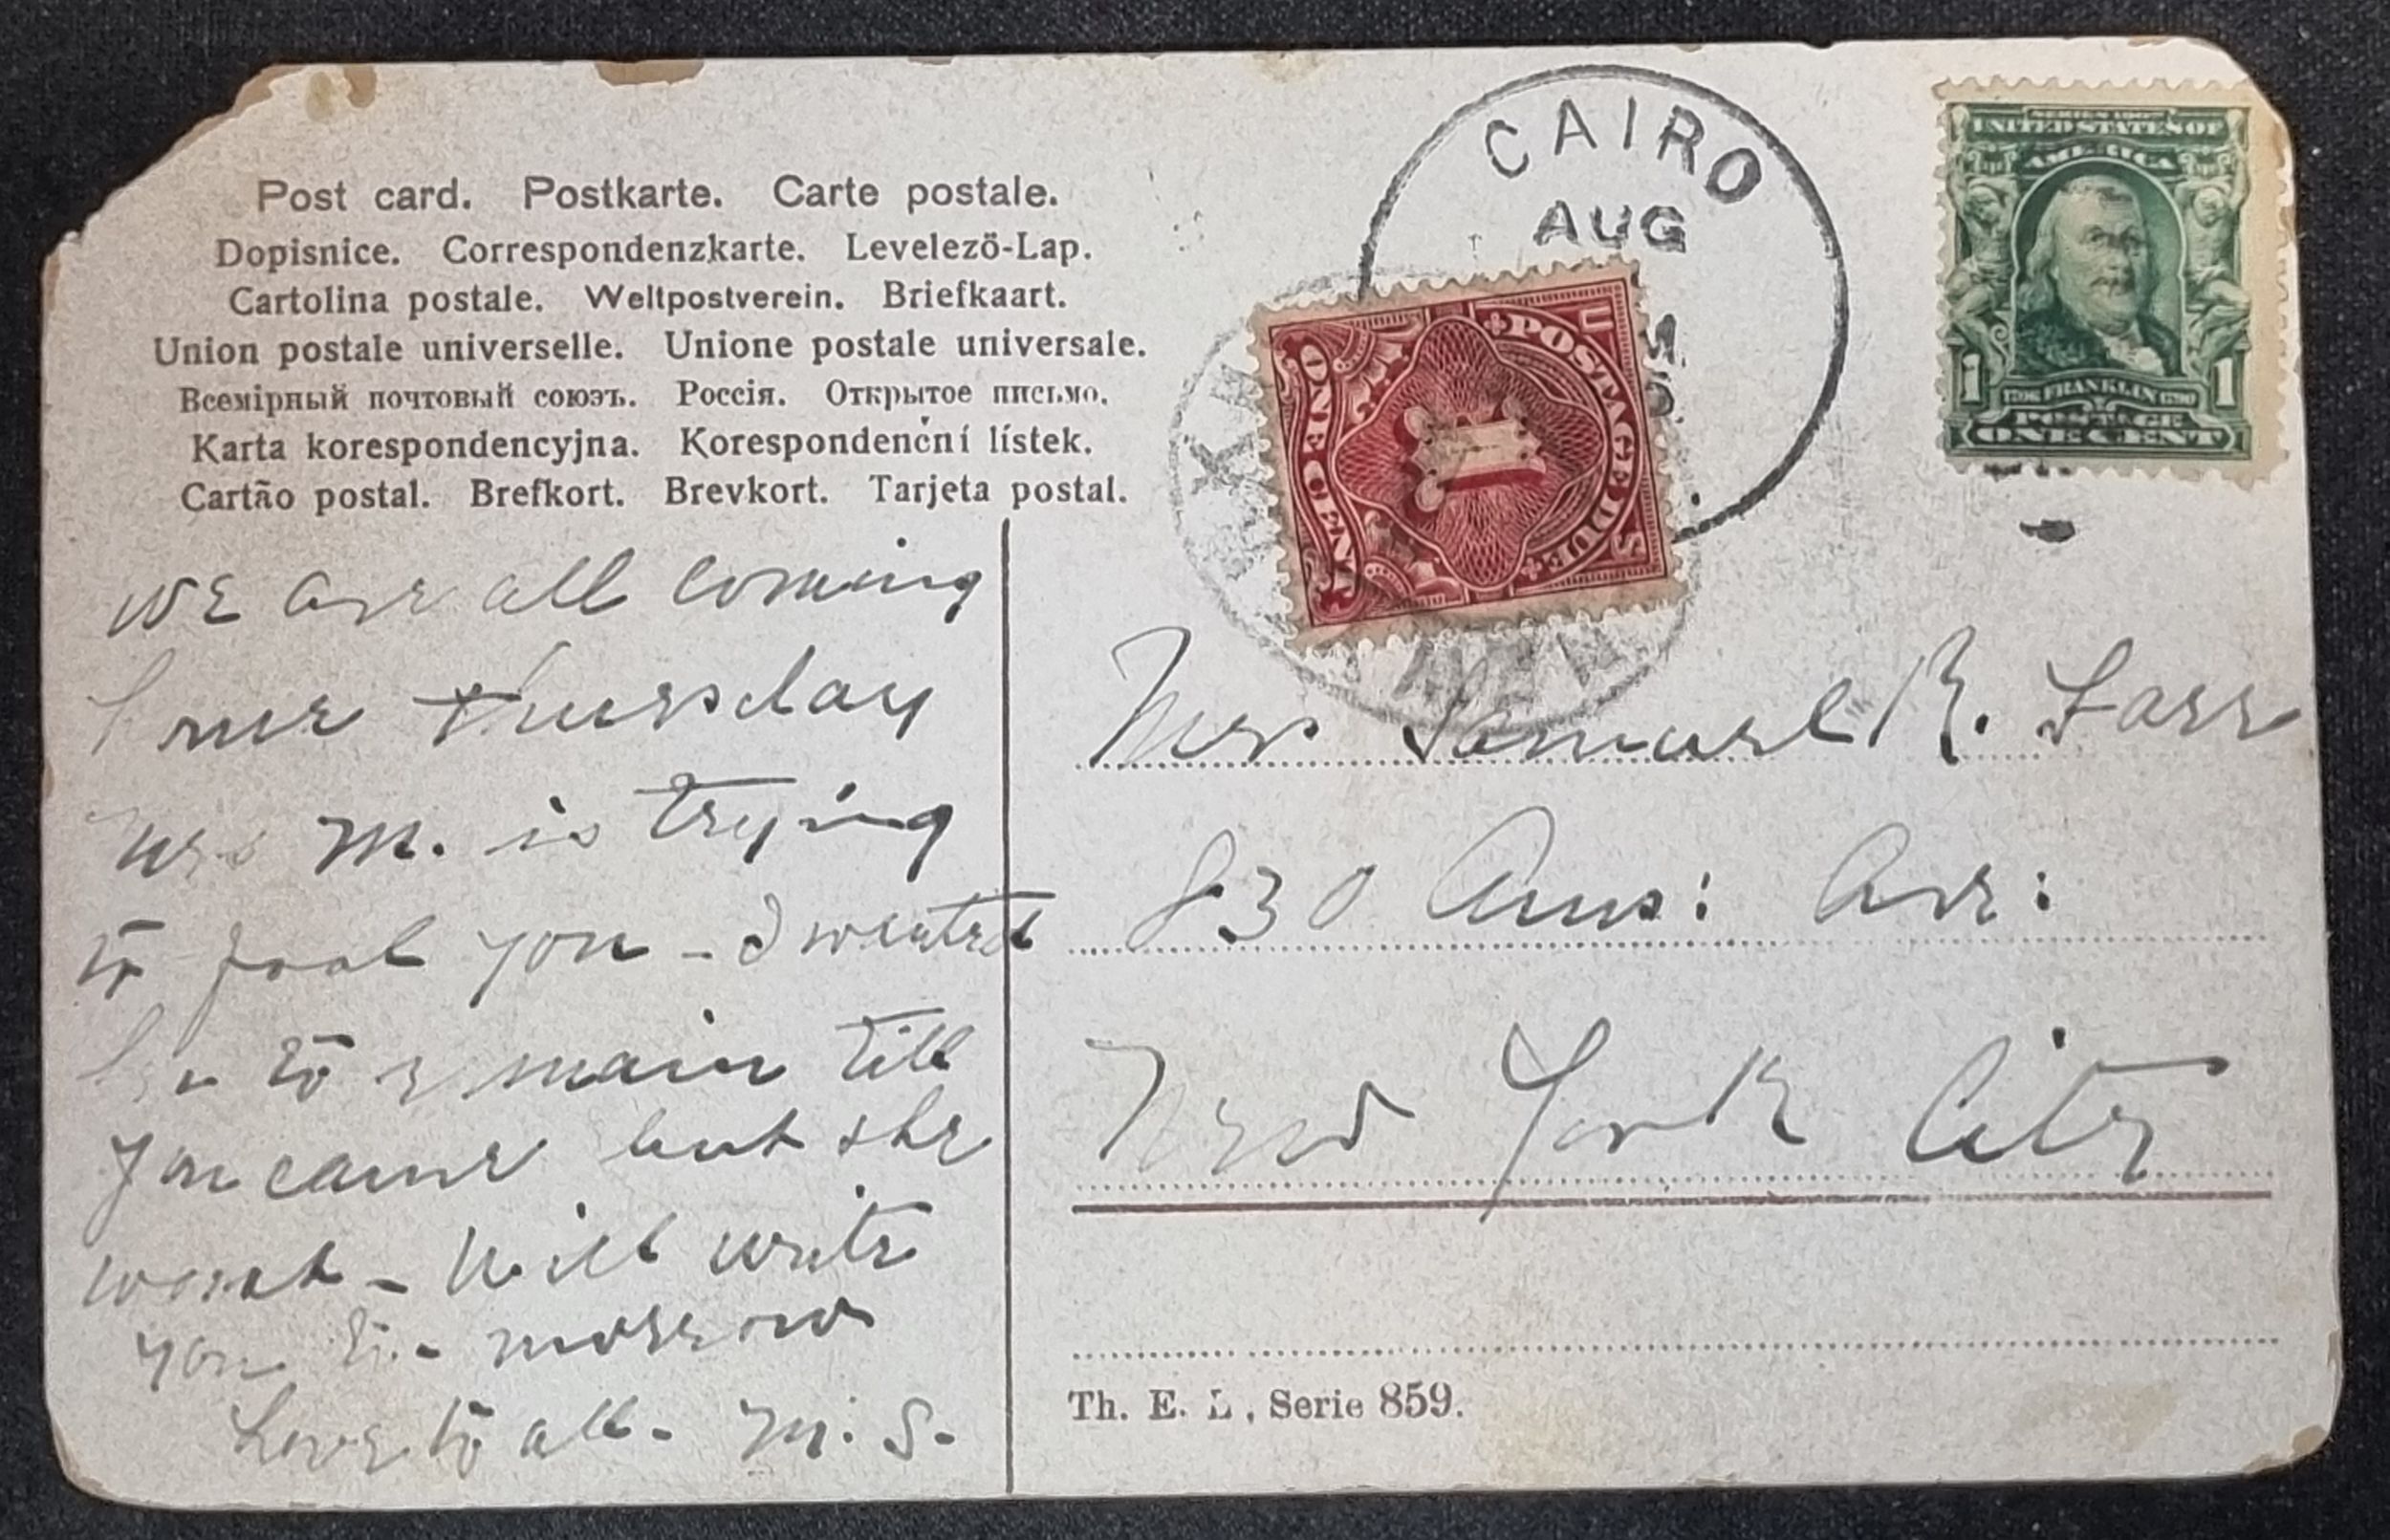 Post card. Postkarte. Carte postale.
Dopisnice. Correspondenzkarte. Levelezö-Lap.
Cartolina postale. Weltpostverein. Briefkaart.
Union postale universelle. Unione postale universale.
Всемірный почтовый союзъ. Россія. Открытое письмо.
Karta korespondencyjna. Korespondenční lístek.
Cartão postal. Brefkort. Brevkort. Tarjeta postal.
CAIRO
AUG
M.
UNITED STATES OF
AMERICA
1 1706 FRANKLIN 1790 1
POSTAGE
ONE CENT
POSTAGE DUE
U S
ONE CENT
1
We are all coming
home Thursday
Mrs M. is trying
to fool you - I wanted
her to remain till
you came but she
wont - Will write
you to-morrow
Love to all - M. S.
Mrs Samuel R. Farr
830 Ams: Ave:
New York City
Th. E. L, Serie 859.